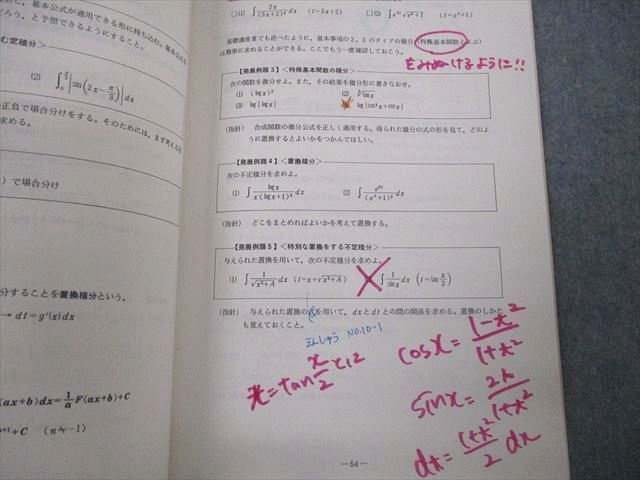 し、基本公式が適用できる形に持ち込む。
ろう、と予想できるようにすること。
む定積分＞
(2) ∫ |sin(2x−π/3)|dx
正負で場合分けをする。そのためには、まず考える区
求める。
）で場合分け
分することを置換積分という。
→ dt=g'(x)dx
(ax+b)dx=1/a F(ax+b)+C
+C (n≠−1)
□(1) ∫ 2x/(3x+2)⁴ dx (t=3x+2)
基礎講座Ⅲでも述べたように、基本事項の2，3のタイプの積分（特殊基本関数とよぶ）
は簡単に求めることができる。ここでもう一度確認しておこう。
をみぬけるように!!
【発展例題3】＜特殊基本関数の積分＞
次の関数を微分せよ。また、その結果を積分形に書きなおせ。
(1) (log x)² (2)
(3) log|log x| log|cos³x+cos x|
(指針) 合成関数の微分公式を正しく適用する。得られた積分の式の形を見て、どのよ
うに置換するとよいかをつかんでほしい。
【発展例題4】＜置換積分＞
次の不定積分を求めよ。
(1) ∫ log x/x(log x+1)² dx (2) ∫ e²ˣ/(eˣ+1)² dx
(指針) どこをまとめればよいかを考えて置換する。
【発展例題5】＜特別な置換をする不定積分＞
与えられた置換を用いて、次の不定積分を求めよ。
(1) ∫ 1/√(x²+A) dx (t=x+√(x²+A)) ∫ 1/sin x dx (t=tan x/2)
(指針) 与えられた置換の式を用いて、dxとdtとの間の関係を求める。置換のしかた
も覚えておくこと。
えんしゅう NO.10-1
t=tan x/2 とに
cosx= 1−t²/1+t²
sinx= 2t/1+t²
dt= 1+t²/2 dx
—54—